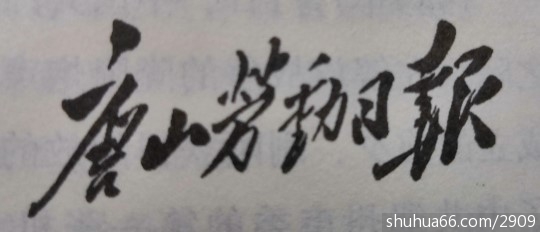 唐山劳動日報
shuhua66.com/2909